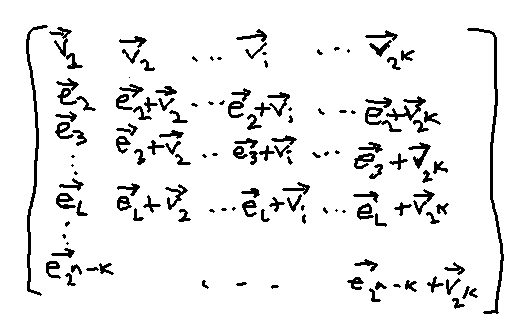 v⃗₁ v⃗₂ ... v⃗ᵢ ... v⃗₂ᴋ
e⃗₂ e⃗₂+v⃗₂ ... e⃗₂+v⃗ᵢ ... e⃗₂+v⃗₂ᴋ
e⃗₃ e⃗₃+v⃗₂ ... e⃗₃+v⃗ᵢ ... e⃗₃+v⃗₂ᴋ
...
e⃗_L e⃗_L+v⃗₂ ... e⃗_L+v⃗ᵢ ... e⃗_L+v⃗₂ᴋ
...
e⃗_2^n-k ... e⃗_2^n-k+v⃗₂ᴋ